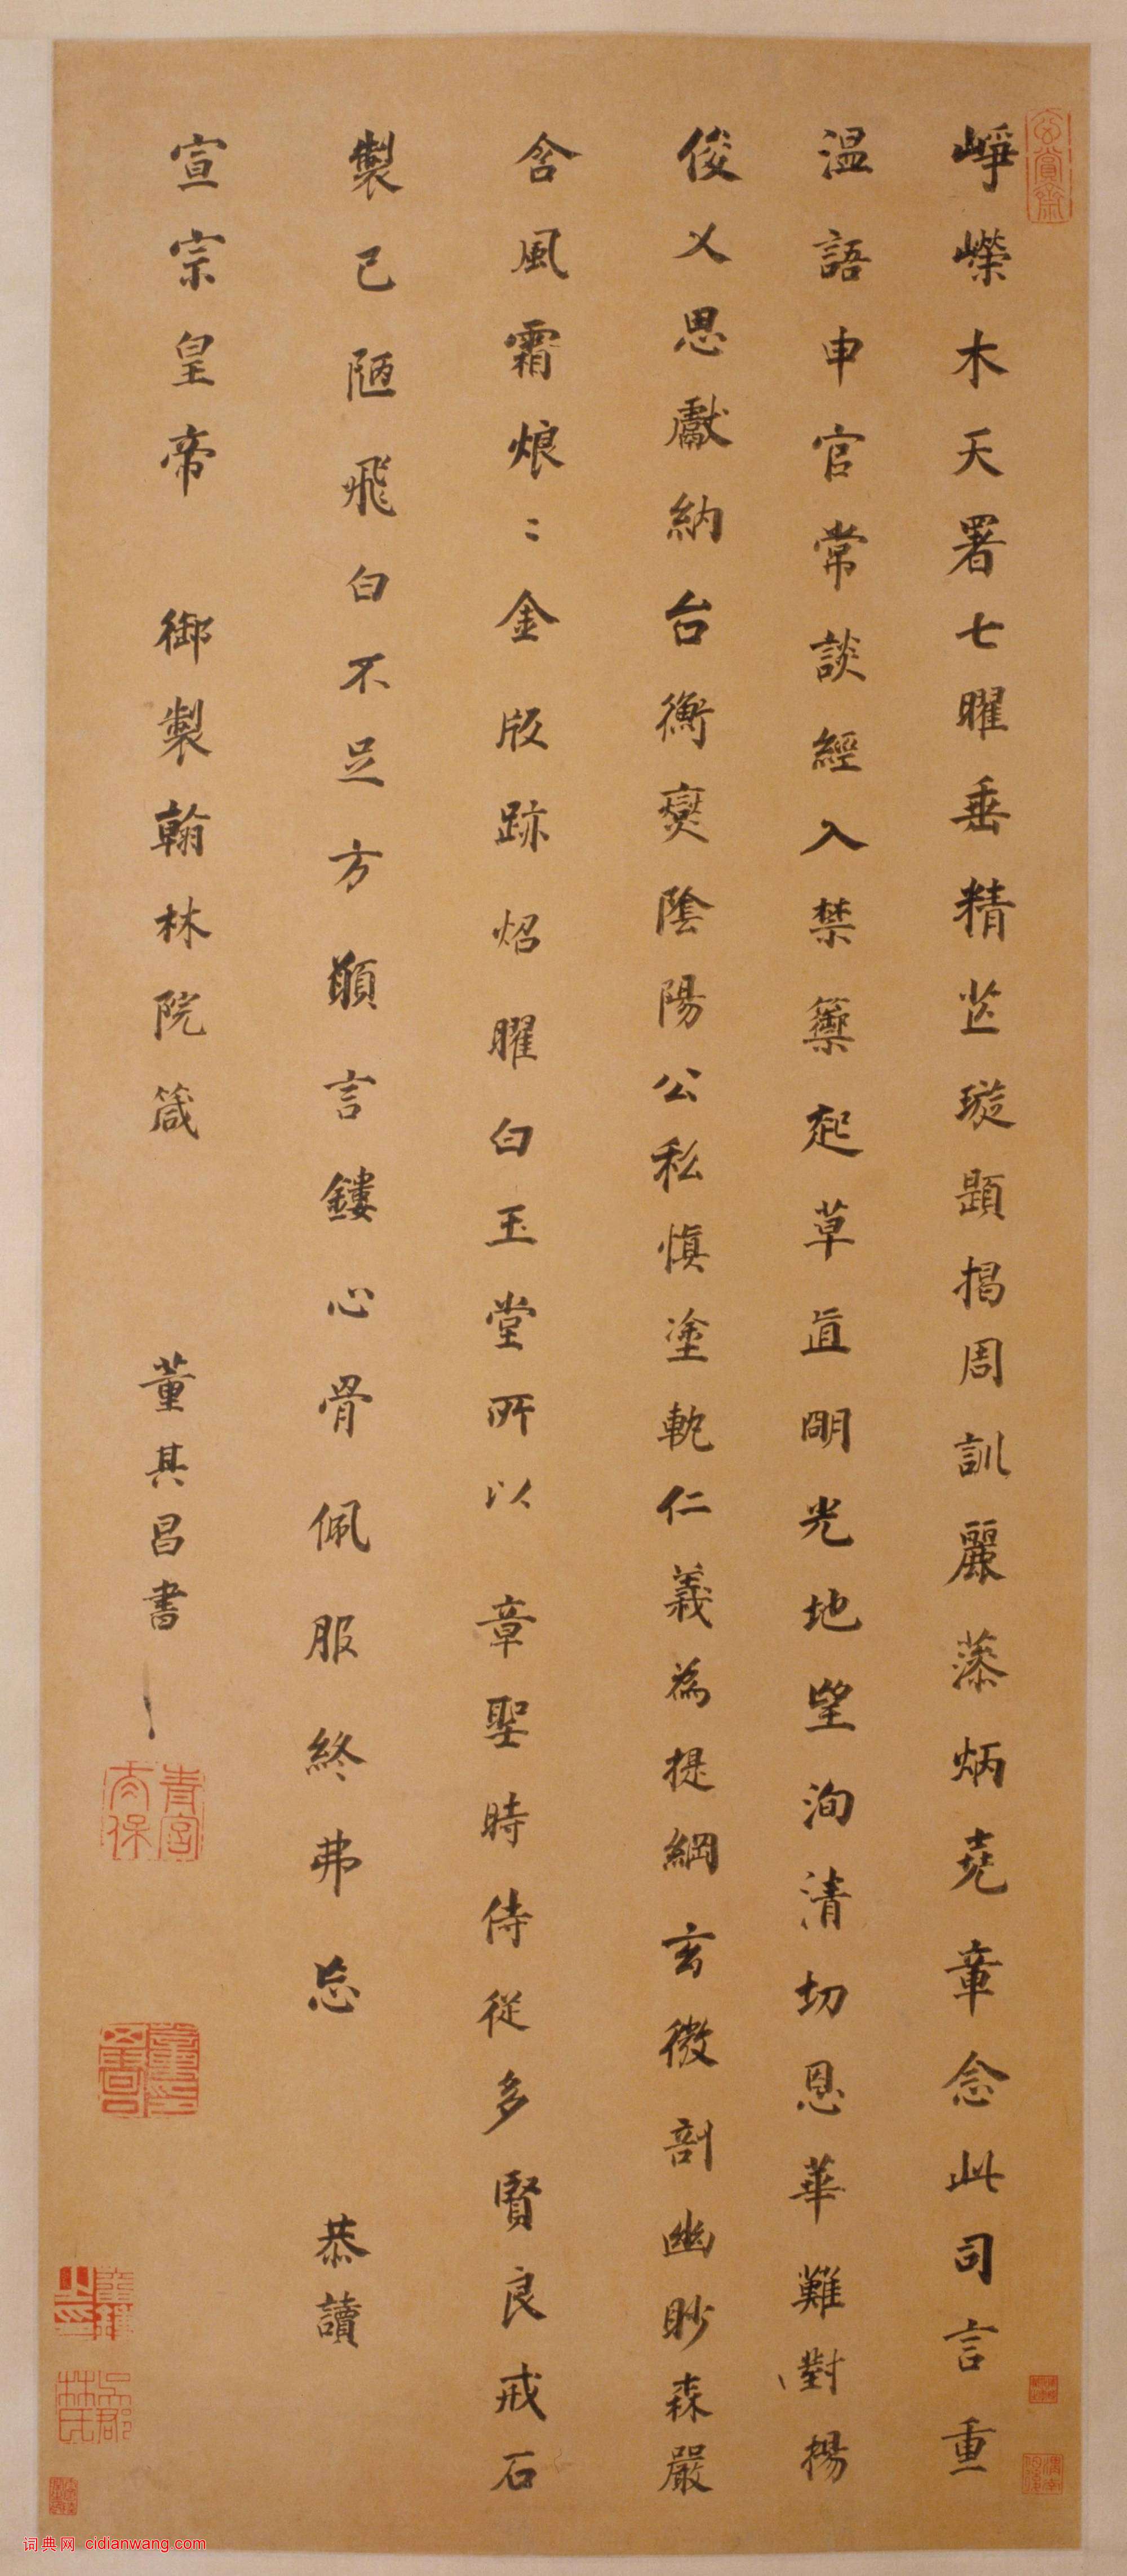 崢嶸木天署七曜垂精芒璇題揭周訓麗藻炳堯章念此司言重
温語申官常談經入禁籞起草直明光地望洵清切恩華難對揚
俊乂思獻納台衡爕陰陽公私慎塗軌仁義為提綱玄微剖幽眇森嚴
含風霜烺〻金版跡炤曜白玉堂所以 章聖時侍從多賢良戒石
製已陋飛白不足方願言鏤心骨佩服終弗忘 恭讀
宣宗皇帝 御製翰林院箴 董其昌書
玄賞齋
青宮太保
词典网 cidianwang.com